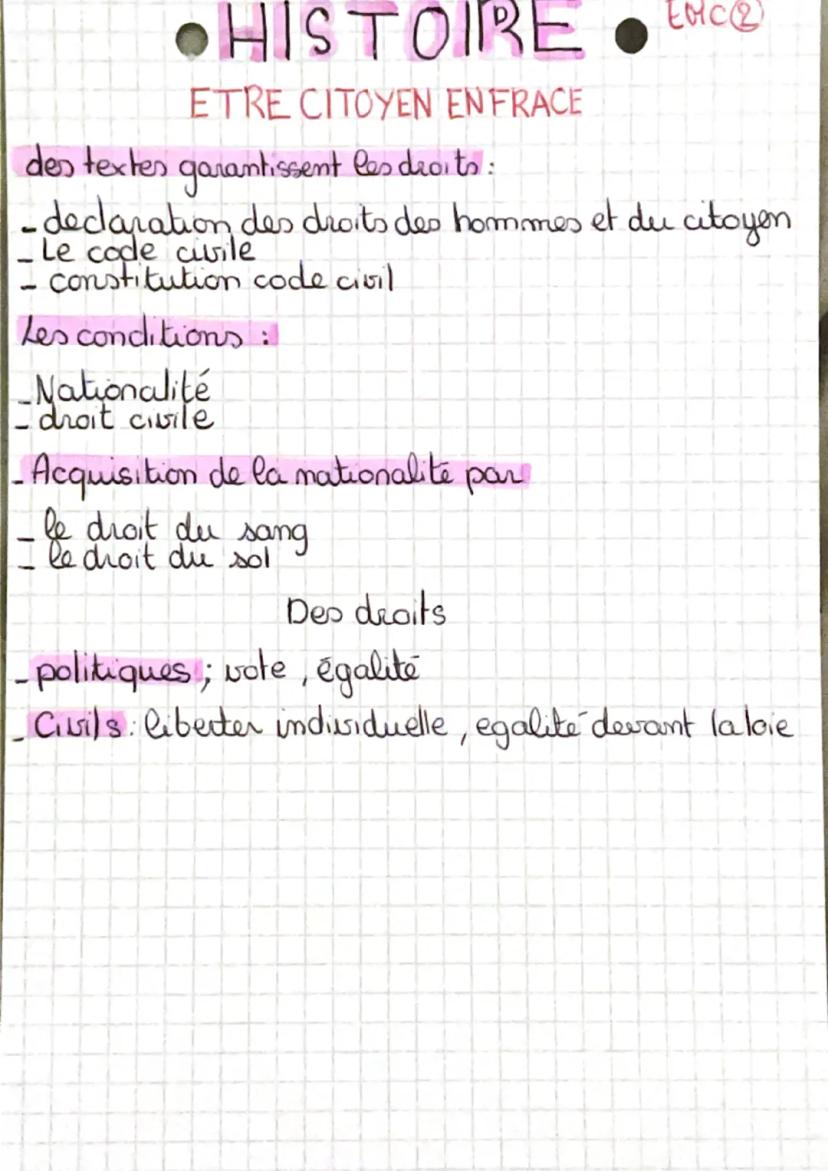 HISTOIRE
EMC②
ETRE CITOYEN EN FRACE
des textes garantissent les droits :
- declaration des droits des hommes et du citoyen
- Le code civile
- constitution code civil
Les conditions :
- Nationalité
- droit civile
- Acquisition de la nationalité par
- le droit du sang
- le droit du sol
Des droits
- politiques ; vote , égalité
- Civils : liberter individuelle , egalité devant la loie